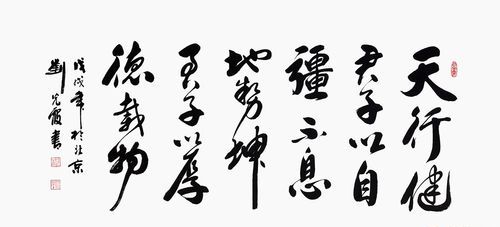 天行健
君子以自
疆不息
地勢坤
君子以厚
德載物
戊戌年於北京
劉光霞書